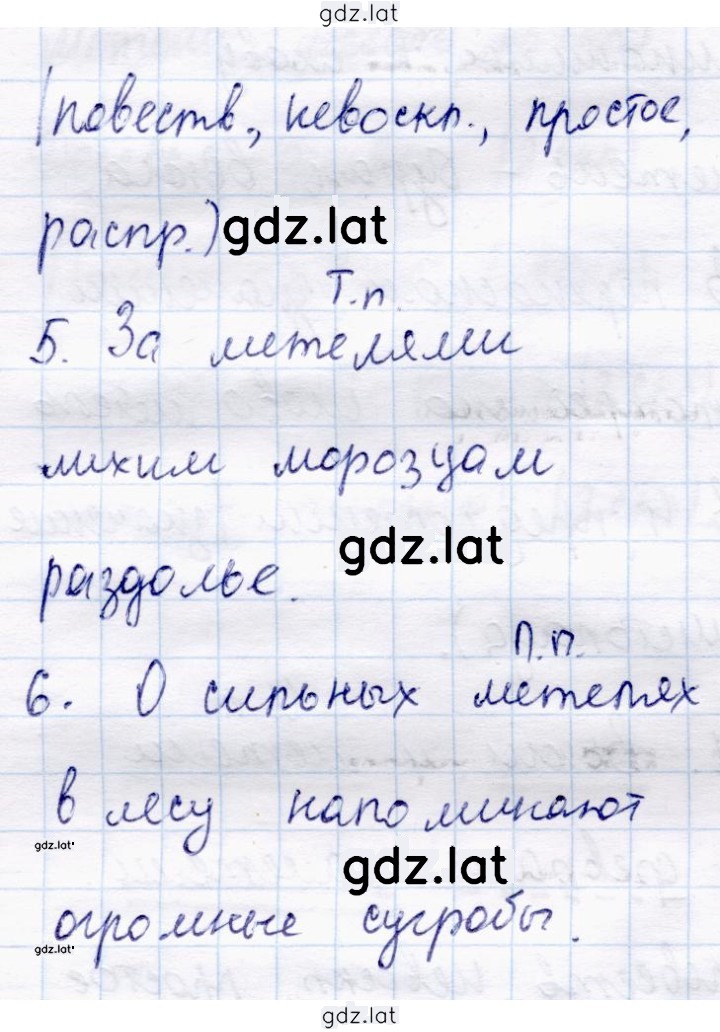 gdz.lat
(повеств., невоскл., простое,
распр.) gdz.lat
Т.п.
5. За метелями
лихим морозцам
gdz.lat
раздолье.
П.п.
6. О сильных метелях
в лесу напоминают
gdz.lat
gdz.lat
огромные сугробы.
gdz.lat
gdz.lat